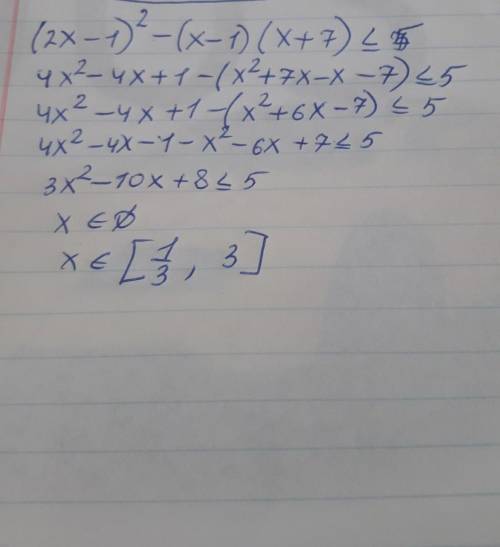 (2x-1)² - (x-1)(x+7) ≤ 5
4x² - 4x + 1 - (x² + 7x - x - 7) ≤ 5
4x² - 4x + 1 - (x² + 6x - 7) ≤ 5
4x² - 4x - 1 - x² - 6x + 7 ≤ 5
3x² - 10x + 8 ≤ 5
x ∈ ∅
x ∈ [1/3, 3]